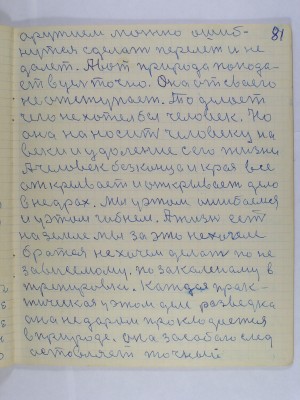 81
оружием можно ошиб-
нутся сделат перелет и не
далет. А вот природа попода-
ет в цел точно. Она от своего
не отступает. То делает
чего не хотел бы человек. Но
она наносит человеку на
веки и удоление с его жизни
А человек без конца и края все
открывает и открывает дело
в недрах. Мы у этом ошибаемся
и у этом гибнем. А жизн ест
на земле мы за это не хочем
братся не хочем делат по не
зависемому. по закаленому в
тренировки. Каждая прак-
тическая у этом деле разведка
она не даром прокладается
в природе. она за собою след
оставляет точный